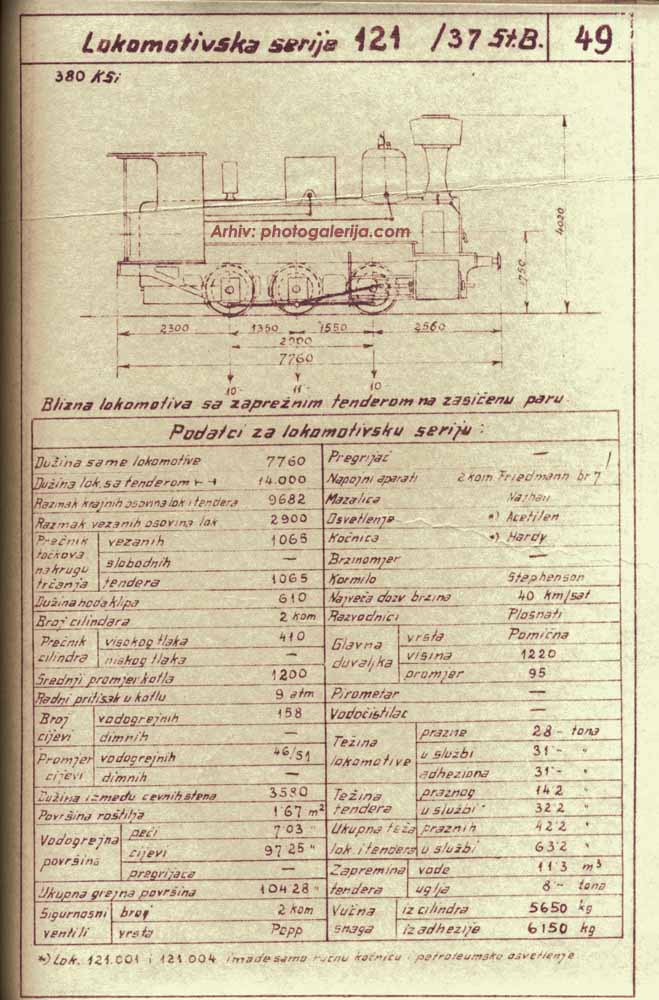 Lokomotivska serije 121 /37 St.B. 49
380 KSi
Arhiv: photogalerija.com
4020
1750
2300 1350 1550 2560
2900
7760
10 11 10
Blizna lokomotiva sa zaprežnim tenderom na zasićenu paru.
Podatci za lokomotivsku seriju:
Dužina same lokomotive 7760
Dužina lok. sa tenderom 14.000
Razmak krajnih osovina lok i tendera 9682
Razmak vezanih osovina lok 2900
Prečnik točkova na krugu trčanja vezanih 1065
slobodnih —
tendera 1065
Dužina hoda klipa 610
Broj cilindara 2 kom
Prečnik cilindra visokog tlaka 410
niskog tlaka —
Srednji promjer kotla 1200
Radni pritisak u kotlu 9 atm
Broj cijevi vodogrejnih 158
dimnih —
Promjer cijevi vodogrejnih 46/51
dimnih —
Dužina između cevnih stena 3580
Površina roštilja 1·67 m²
Vodogrejna površina peći 7·03 "
cijevi 97·25 "
pregrijača —
Ukupna grejna površina 104·28 "
Sigurnosni ventili broj 2 kom
vrsta Popp
Pregrijač —
Napojni aparati 2 kom Friedmann br 7
Mazalica Nathan
Osvetlenje *) Acetilen
Kočnica *) Hardy
Brzinomjer —
Kormilo Stephenson
Najveća dozv brzina 40 km/sat
Razvodnici Plosnati
Glavna duvaljka vrsta Pomična
visina 1220
promjer 95
Pirometar —
Vodočistilac —
Težina lokomotive prazne 28·- tona
u službi 31·- "
adheziona 31·- "
Težina tendera praznog 14·2 "
u službi 32·2 "
Ukupna teža lok. i tendera praznih 42·2 "
u službi 63·2 "
Zapremina tendera vode 11·3 m³
uglja 8·- tona
Vučna snaga iz cilindra 5650 kg
iz adhezije 6150 kg
*) Lok. 121.001 i 121.004 imade samo ručnu kočnicu i petroleumsko osvetlenje